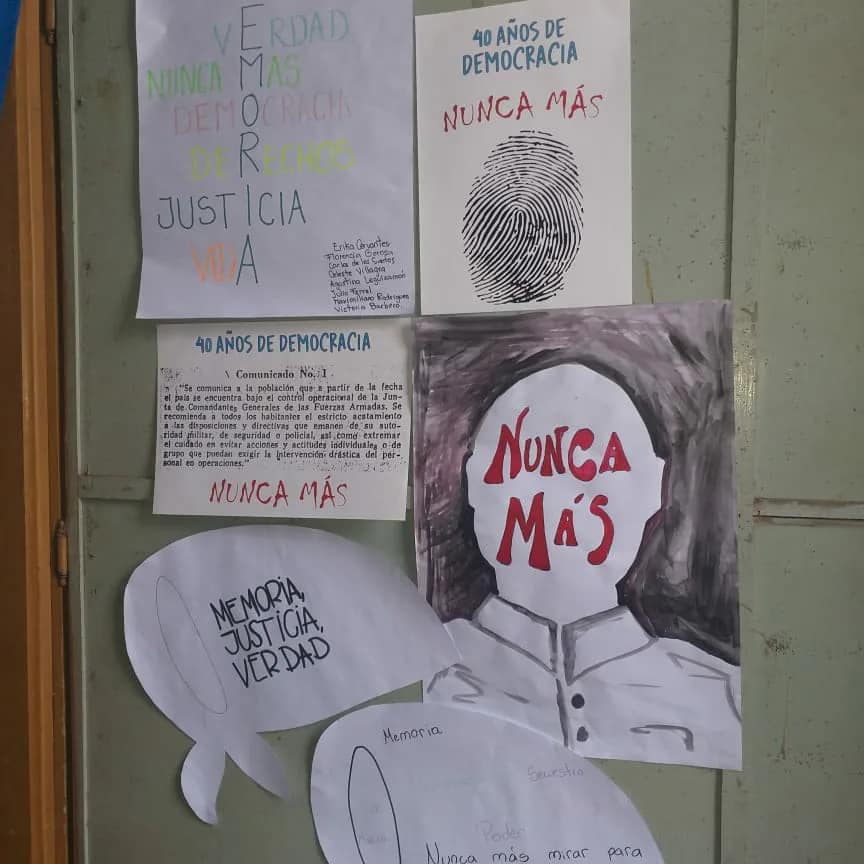 VERDAD
MEMORIA
NUNCA MAS
DEMOCRACIA
DERECHOS
JUSTICIA
VIDA
Erika Cervantes
Florencia
Carlos de los Santos
Celeste Villagra
Agustina Leguizamón
Julio Ferrel
Maximiliano Rodriguez
Victoria Barbero
40 AÑOS DE
DEMOCRACIA
NUNCA MÁS
40 AÑOS DE DEMOCRACIA
Comunicado No. 1
"Se comunica a la población que a partir de la fecha
el país se encuentra bajo el control operacional de la Jun-
ta de Comandantes Generales de las Fuerzas Armadas. Se
recomienda a todos los habitantes el estricto acatamiento
a las disposiciones y directivas que emanen de su auto-
ridad militar, de seguridad o policial, así como extremar
el cuidado en evitar acciones y actitudes individuales o de
grupo que puedan exigir la intervención drástica del per-
sonal en operaciones."
NUNCA MÁS
NUNCA
MÁS
MEMORIA,
JUSTICIA,
VERDAD
Memoria
Secuestro
Poder
Nunca más mirar para